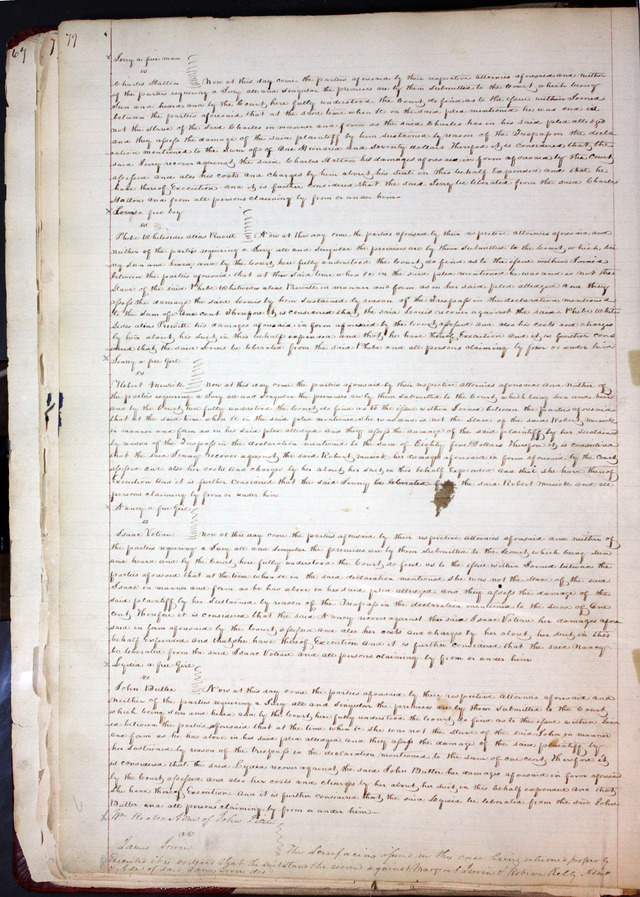 67 7 79
Tony a free man
vs
Charles Hatton Now at this day come the parties aforesaid by their respective attornies aforesaid and neither
of the parties requiring a Jury all and singular the premises are by them submitted to the Court, which being
seen and heard and by the Court here fully understood the Court do find as to the issue within Joined
between the parties aforesaid that at the time when &c in the said plea mentioned he was and is
not the slave of the said Charles in manner and form as the said Charles has in his said plea alledged
and they assess the damage of the said plaintiff by him sustained by reason of the Trespass in the decla
ration mentioned to the sum of of One Hundred and seventy dollars Therefore it is considered that, the
said Tony recover against the said Charles Hatton his damages aforesaid in form aforesaid by the Court
assessed and also his costs and charges by him about, his suit in this behalf expended and that he
have thereof Execution and it is further considered that the said Tony be liberated from the said Charles
Hatton and from all persons claiming by from or under him
Lewis a free boy
vs
Phebe Whitesides alias Prewitt Now at this day come the parties aforesaid by their respective attornies aforesaid and
neither of the parties requiring a Jury all and singular the premises are by them submitted to the Court, which be
ing seen and heard and by the Court, here fully understood the Court, do find as to the issue within Joined
between the parties aforesaid that at the said time when &c in the said plea mentioned he was and is not the
slave of the said Phebe Whitesides alias Prewitt in manner and form as in her said plea alledged and they
assess the damage the said Lewis by him sustained by reason of the Trespass in the declaration mentioned
to the sum of One cent Therefore it is considered that, the said Lewis recover against the said Phebe White
sides alias Prewitt his damages aforesaid in form aforesaid by the Court, assessed and also his costs and charges
by him about his suit, in this behalf expended and that, he have thereof Execution and it is further cons
idered that, the said Lewis be liberated from the said Phebe and all persons claiming by from or under him
Jinny a free Girl
vs
Robert Musick Now at this day come the parties aforesaid by their respective attornies aforesaid and neither of
the parties requiring a Jury all and singular the premises are by them submitted to the Court, which being seen and heard
and by the Court, here fully understood the Court, do find as to the issue within Joined between the parties aforesaid
that at the said time when &c in the said plea mentioned she was and is not the slave of the said Robert Musick
in manner and form as in his said plea alledged and they assess the damage of the said plaintiff by her sustained
by reason of the Trespass in the declaration mentioned to the sum of Eighty five Dollars Therefore it is considered
that the said Jinny recover against the said Robert Musick her damages aforesaid in form aforesaid by the Court
assessed and also her costs and charges by her about her suit, in this behalf expended and that she have thereof
Execution and it is further considered that the said Jinny be liberated from the said Robert Musick and all
persons claiming by from or under him
Nancy a free Girl
vs
Isaac Votiau Now at this day come the parties aforesaid by their respective attornies aforesaid and neither of
the parties requiring a Jury all and singular the premises are by them submitted to the Court, which being seen
and heard and by the Court, here fully understood the Court, do find as to the issue within Joined between the
parties aforesaid that at the time when &c in the said declaration mentioned she was not the slave of the said
Isaac in manner and form as he has above in his said plea alledged and they assess the damage of the
said plaintiff by her sustained by reason of the Trespass in the declaration mentioned to the sum of One
cent, Therefore it is considered that the said Nancy recover against the said Isaac Votiau her damages afore
said in form aforesaid by the Court, assessed and also her costs and charges by her about, her suit, in this
behalf expended and that, she have thereof Execution and it is further considered that the said Nancy
be liberated from the said Isaac Votiau and all persons claiming by from or under him
Lydia a free Girl
vs
John Butler Now at this day come the parties aforesaid by their respective attornies aforesaid and
neither of the parties requiring a Jury all and singular the premises are by them submitted to the Court,
which being seen and heard and by the Court, here fully understood the Court, do find as to the issue within Join
ed between the parties aforesaid that at the time when &c she was not the slave of the said John in manner
and form as he has above in his said plea alledged and they assess the damage of the said plaintiff by
her sustained by reason of the trespass in the declaration mentioned to the sum of one cent, Therefore it
is considered that the said Lydia recover against, the said John Butler her damages aforesaid in form aforesaid
by the Court, assessed and also her costs and charges by her about, her suit, in this behalf expended and that
she have thereof Execution and it is further considered that, the said Lydia be liberated from the said John
Butler and all persons claiming by from or under him
Wm Rector Admr of John
vs
James The Scirefacias issued in this case being returned properly
executed it is ordered that the suit stand revived against Margaret & Robert Admr
of said James